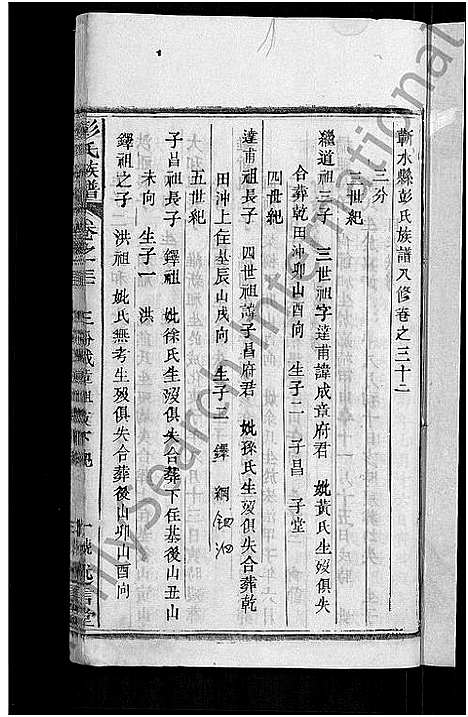 蘄水縣彭氏族譜八修卷之三十二
三分
三世紀
繼道祖三子　三世祖字達甫諱成章府君　妣黃氏生歿俱失
合葬乾田沖卯山酉向　生子二　子昌　子堂
四世紀
達甫祖長子　四世祖諱子昌府君　妣孫氏生歿俱失合葬乾
田沖上住基辰山戌向　生子三　鐸　綱
五世紀
子昌祖長子　鐸祖　妣徐氏生歿俱失合葬下住基後山丑山
未向　生子一　洪
鐸祖之子　洪祖　妣氏無考生歿俱失合葬後山卯山酉向
彭氏族譜　卷之
MySearch International